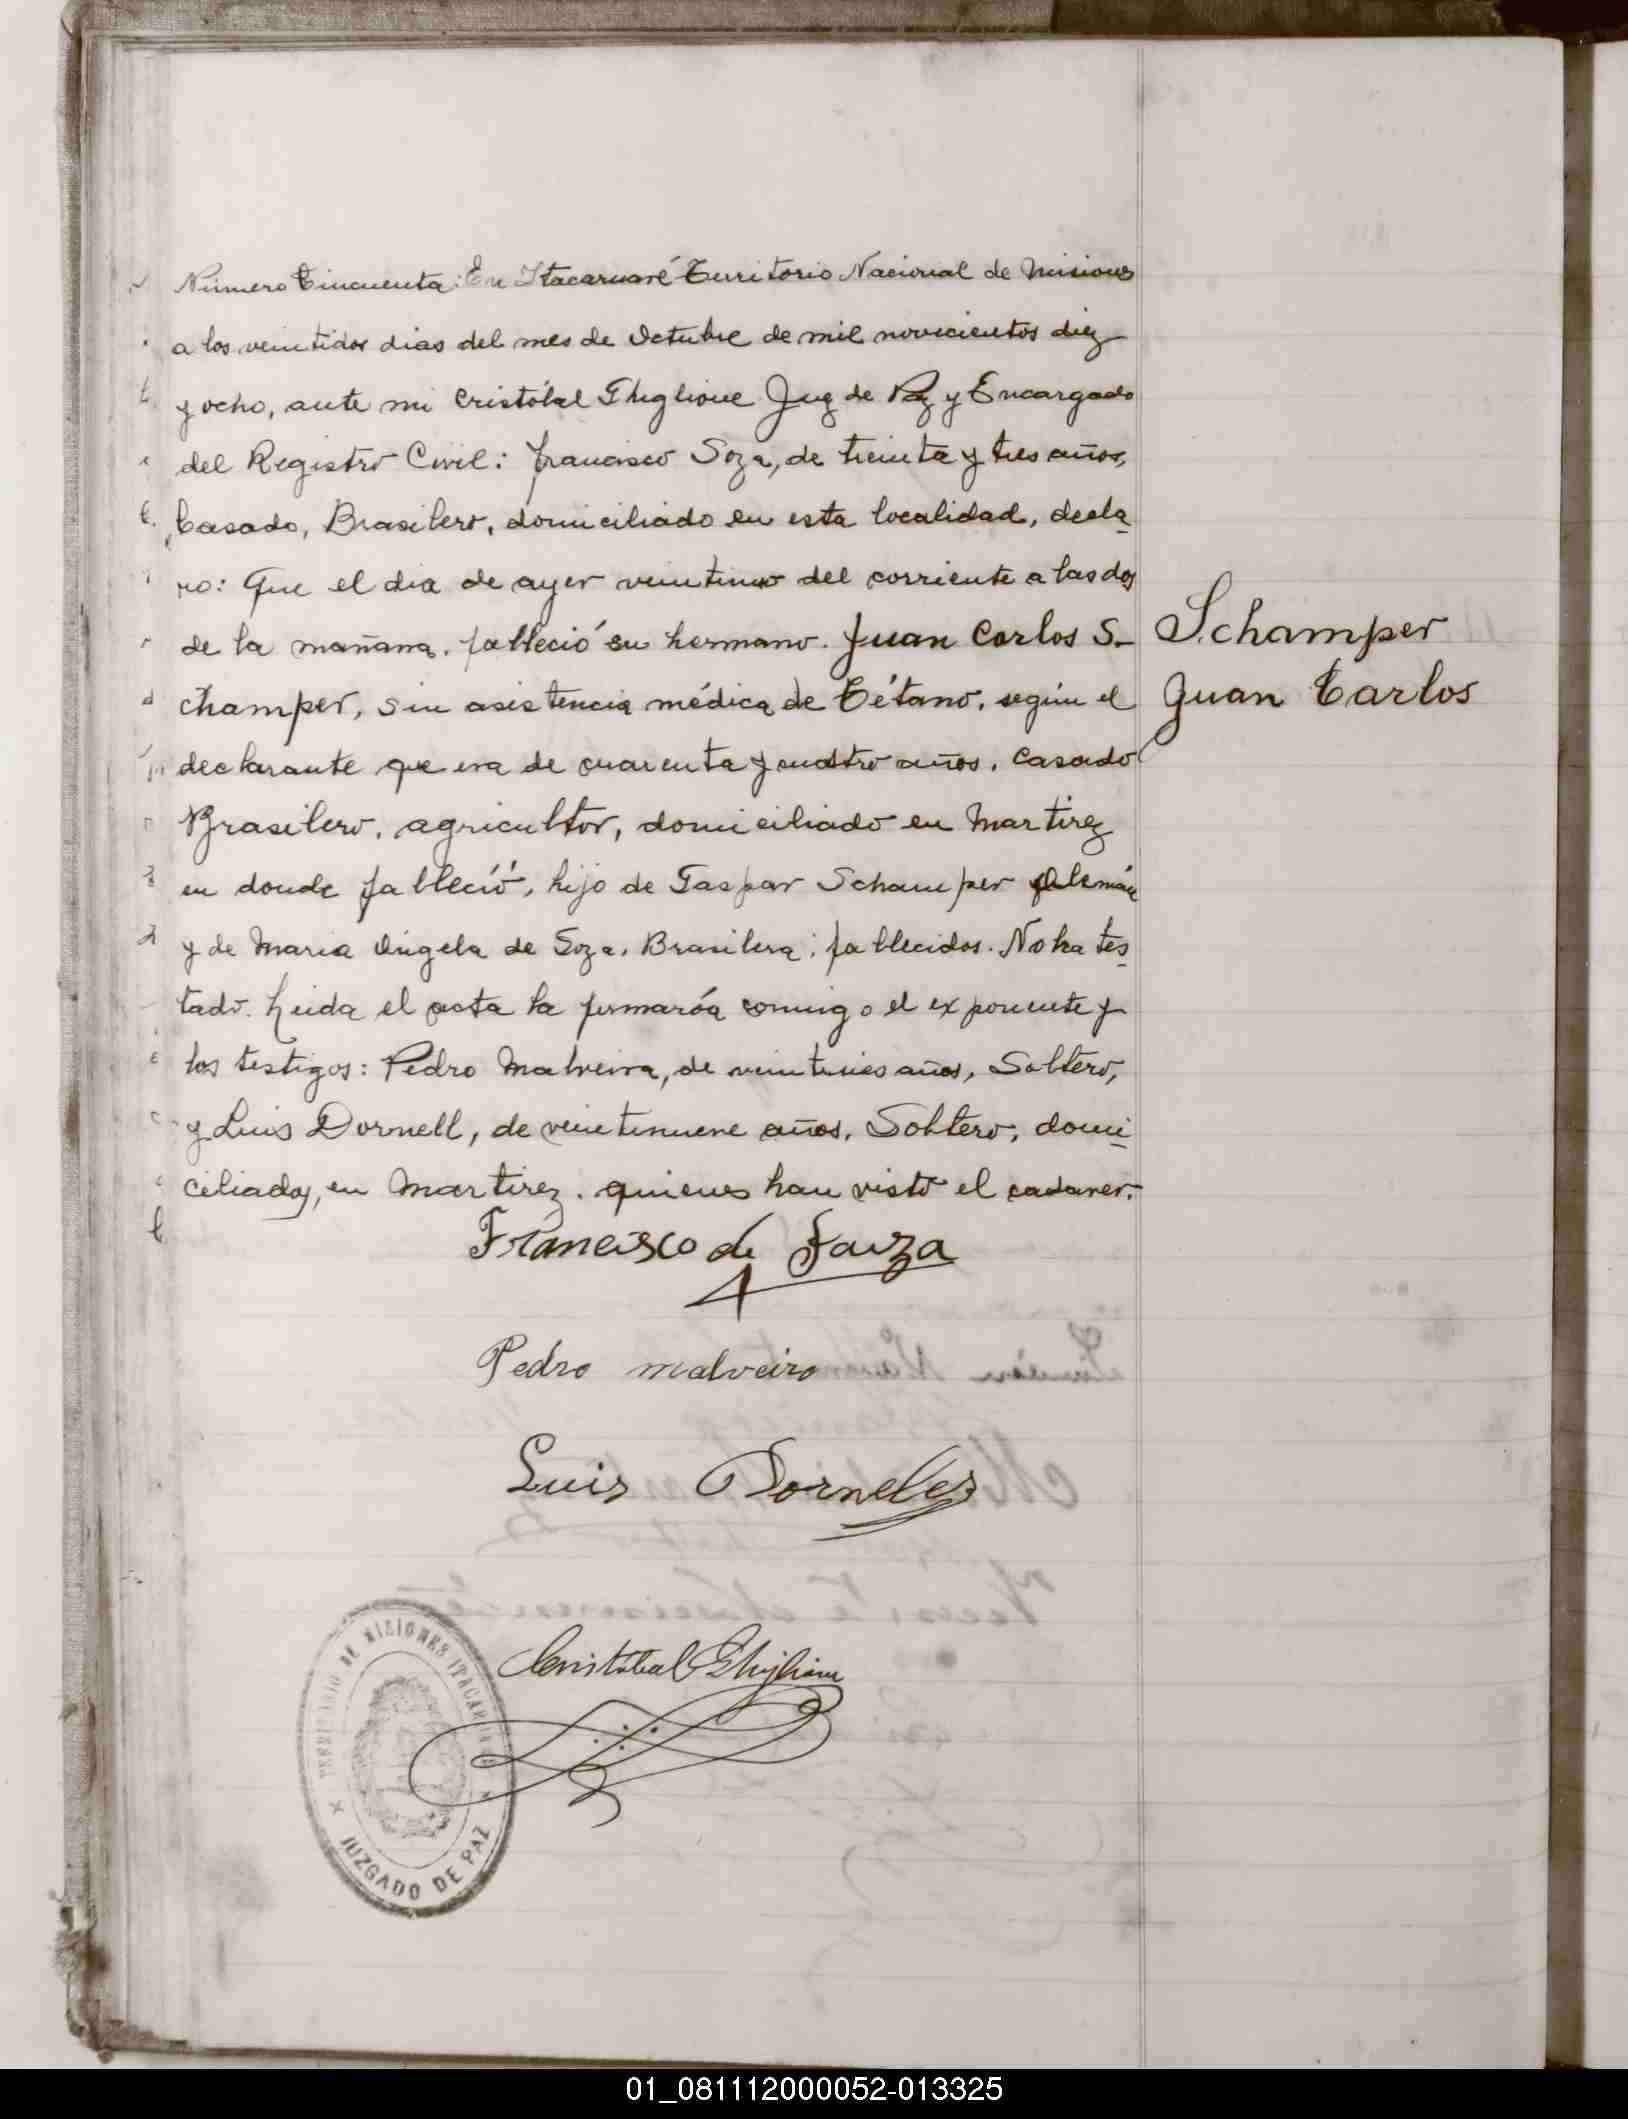 Número Cincuenta: En Itacaruaré Territorio Nacional de Misiones
a los veintidos dias del mes de Octubre de mil novecientos diez
y ocho, ante mi Cristóbal Ghiglione Juez de Paz y Encargado
del Registro Civil: Francisco Soza, de treinta y tres años,
Casado, Brasilero, domiciliado en esta localidad, decla-
ro: Que el dia de ayer veintiuno del corriente a las dos
de la mañana, falleció su hermano. Juan Carlos S-
champer, sin asistencia médica de Tétano, según el
declarante que era de cuarenta y cuatro años, Casado
Brasilero, agricultor, domiciliado en Martirez
en donde falleció, hijo de Gaspar Schamper Alemán
y de Maria Angela de Soza, Brasilera; fallecidos. No ha tes-
tado. Leida el acta la firmarón conmigo el exponente y
los testigos: Pedro Malveira, de veintiseis años, Soltero,
y Luis Dornell, de veintinueve años, Soltero, domi-
ciliados, en Martirez, quienes han visto el cadaver.
Schamper
Juan Carlos
Francisco de Souza
Pedro Malveiro
Luis Dorneles
Cristóbal Ghiglione
TERRITORIO DE MISIONES ITACARUARE
JUZGADO DE PAZ
01_081112000052-013325